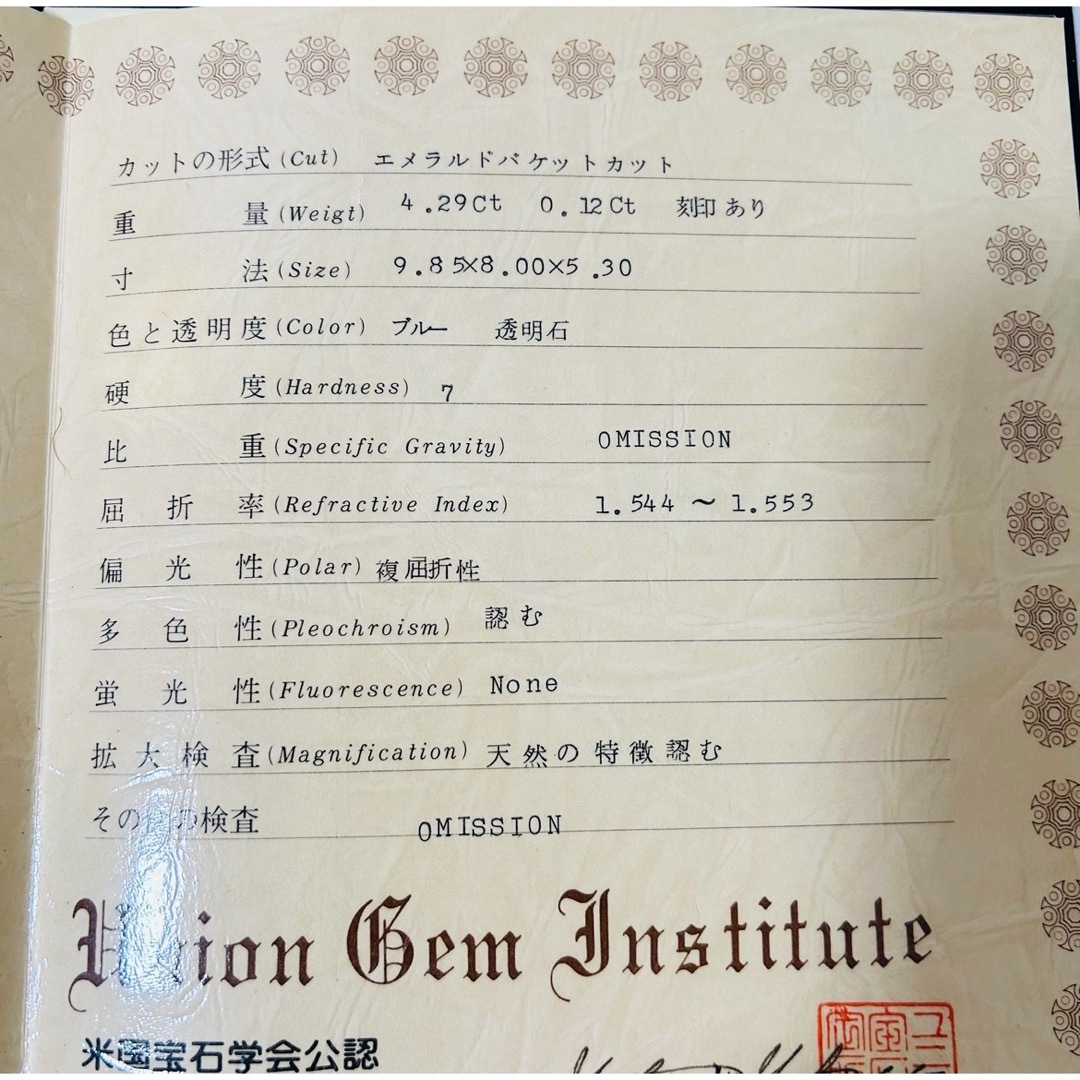 カットの形式(Cut) エメラルドバケットカット
重量(Weigt) 4.29Ct 0.12Ct 刻印あり
寸法(Size) 9.85×8.00×5.30
色と透明度(Color) ブルー 透明石
硬度(Hardness) 7
比重(Specific Gravity) OMISSION
屈折率(Refractive Index) 1.544 ～ 1.553
偏光性(Polar) 複屈折性
多色性(Pleochroism) 認む
蛍光性(Fluorescence) None
拡大検査(Magnification) 天然の特徴認む
その他の検査 OMISSION
Union Gem Institute
米国宝石学会公認